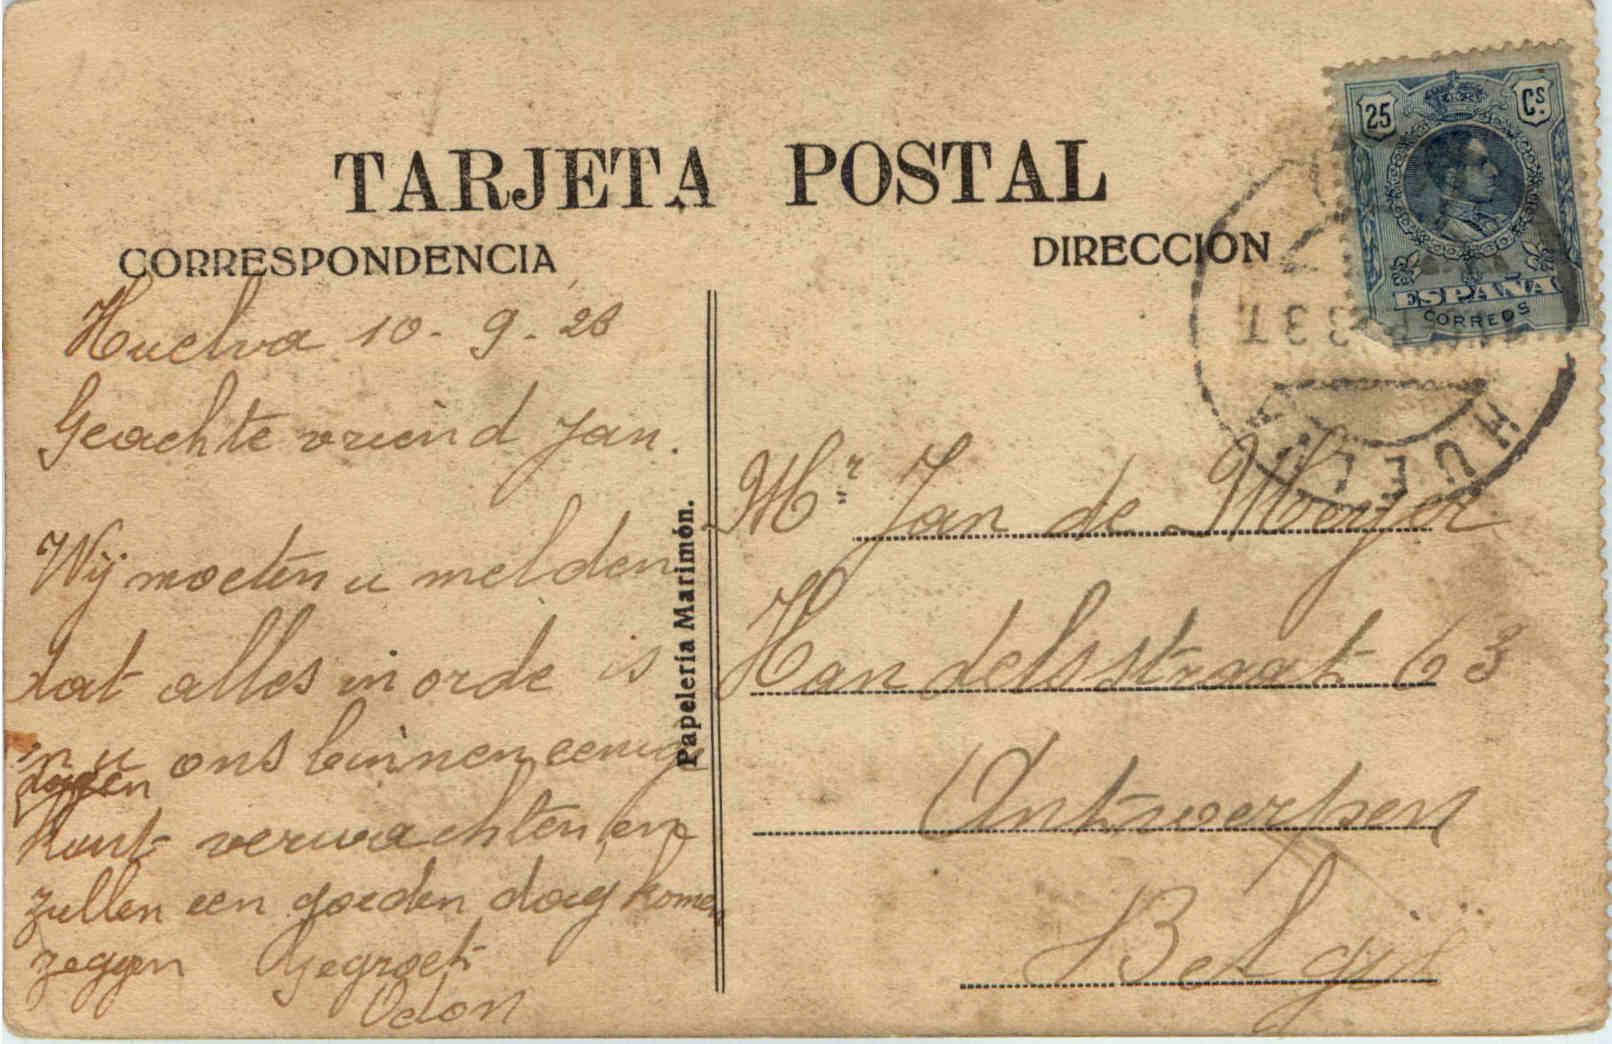 TARJETA POSTAL
CORRESPONDENCIA
DIRECCIÓN
25 Cs.
ESPAÑA
CORREOS
HUELVA
Huelva 10-9.28
Geachte vriend Jan.
Wij moeten u melden
dat alles in orde is
en u ons binnen eenige
dagen
kunt verwachten, en
zullen een goeden dag komen
zeggen Gegroet
Odon
Papelería Marimón.
Mr Jan de Mooyer
Handelsstraat 63
Antwerpen
België